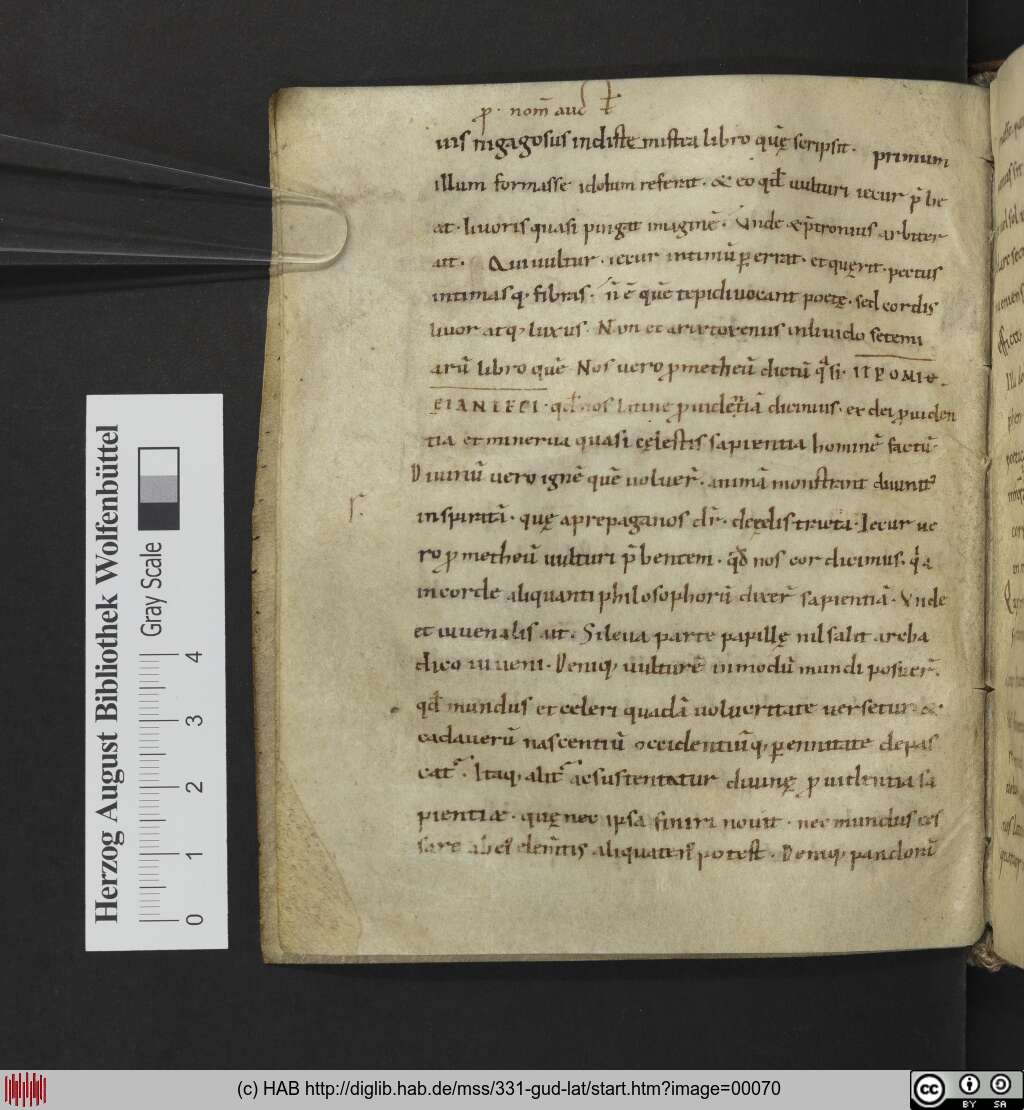 p̄· nom̄ auc̄ ·
uis nigagosus indiste mistra libro quę̄ scripsit· primum
illum formasse idolum referat· & eo qđ uulturi iecur p̄be
at· liuoris quasi pingat imaginē· Vnde & p̄tronius arbiter
ait· Qui uultur· iecur intimū ꝑerrat· et quęrit· pectus
intimasq; fibras· n̄ ē quē tepidi uocant poetę· sed cordis
liuor atq; luxus· Nam et
arū libro quē Nos uero ꝓmetheū dictū q̄si·
qđ nos latine ꝓuidentiā dicimus· ex dei ꝓuiden
tia et minerua quasi cęlestis sapientia hominē factū·
Diuinū uero ignē quē uoluer̄· animā monstrant diuinit᷒
inspiratā· quę apre paganos dr̄· de cęlis tracta· Iecur ue
ro ꝓmetheū uulturi p̄bentem· qđ nos cor dicimus· q̄a
in corde aliquanti philosophorū dixer̄ sapientiā· Vnde
et iuuenalis ait· Sileua parte papillę nil salit archa
dico iuueni· Deniq; uulturē in modū mundi posuer̄·
qđ mundus et celeri quadā uolucritate uersetur &
cadauerū nascentiū occidentiūq; ꝑennitate depas
cat᷒· Itaq; alit᷒ ac sustentatur diuinę ꝓuidentia sa
pientiæ· quę nec ipsa finiri nouit· nec mundus ces
sare ab ei᷒ elem̄tis aliquaten᷒ potest· Deniq; pandorū
Herzog August Bibliothek Wolfenbüttel
Gray Scale
0 1 2 3 4
(c) HAB http://diglib.hab.de/mss/331-gud-lat/start.htm?image=00070
cc BY SA